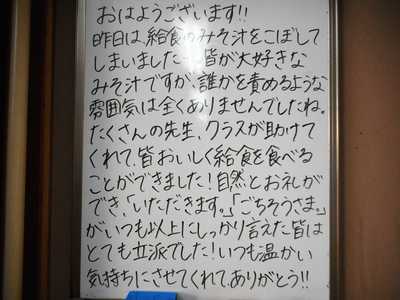 おはようございます!!
昨日は、給食のみそ汁をこぼして
しまいました…皆が大好きな
みそ汁ですが、誰かを責めるような
雰囲気は全くありませんでしたね。
たくさんの先生、クラスが助けて
くれて、皆おいしく給食を食べる
ことができました!自然とお礼が
でき、「いただきます。」「ごちそうさま。」
がいつも以上にしっかり言えた皆は
とても立派でした!いつも温かい
気持ちにさせてくれてありがとう!!